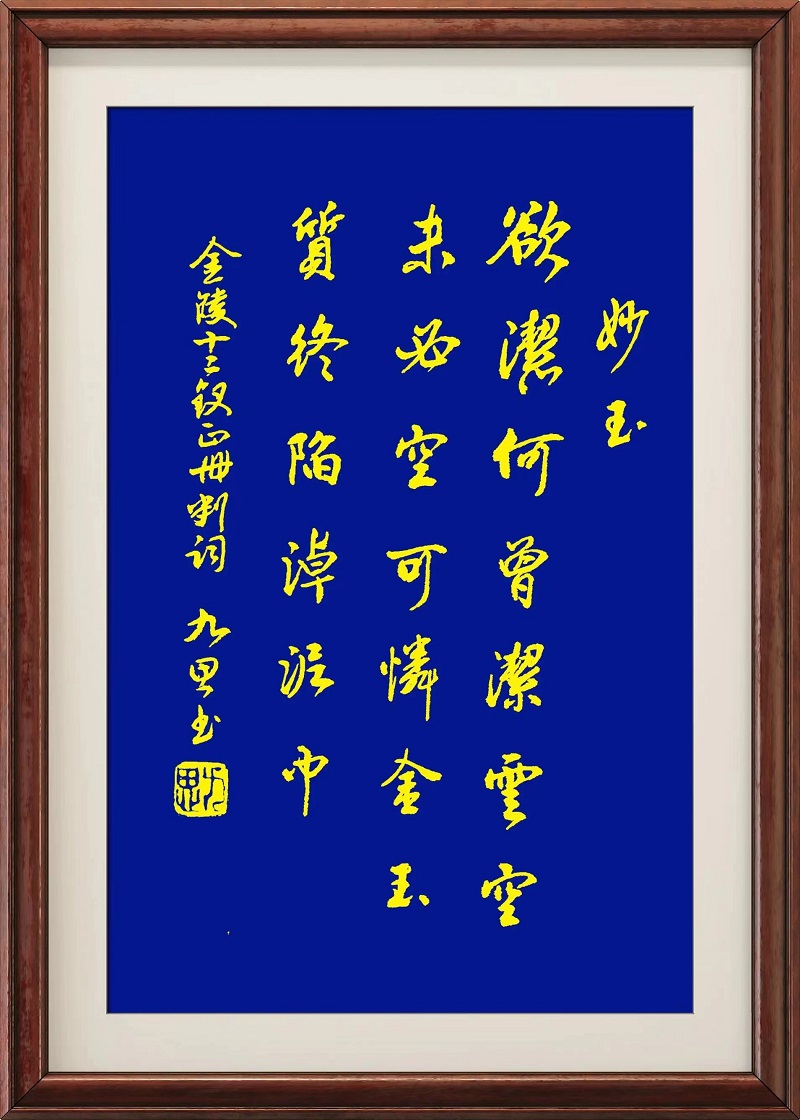 妙玉
欲潔何曾潔雲空
未必空可憐金玉
質終陷淖泥中
金陵十二釵正冊判詞 九思书
九思